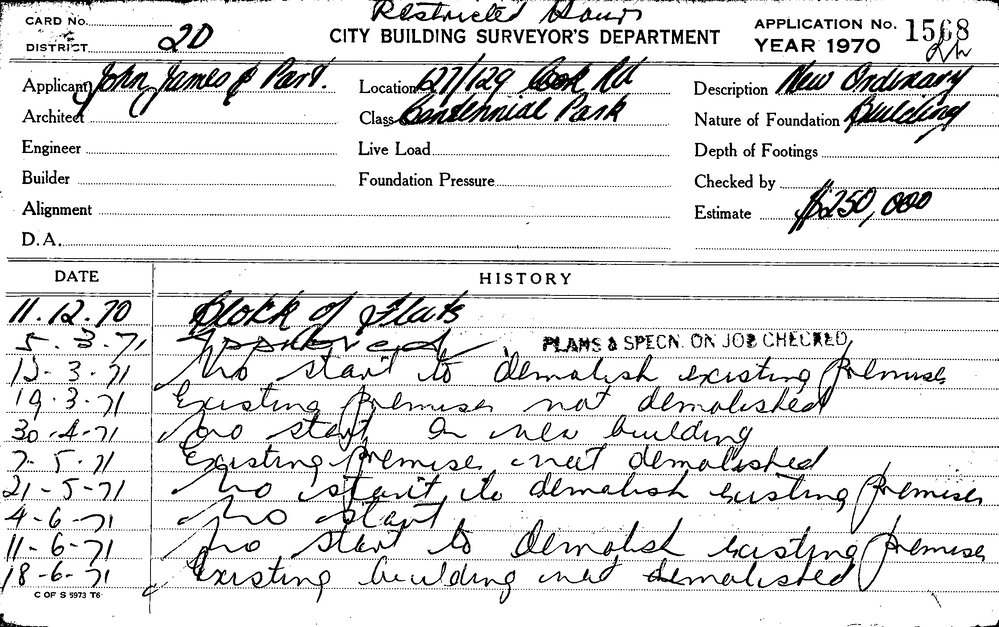 Restricted Hours
CARD No.
CITY BUILDING SURVEYOR'S DEPARTMENT
APPLICATION No. 1568
DISTRICT 2D
YEAR 1970
Applicant John James & Part.
Location 127/129 Cook Rd
Description New Ordinary
Architect
Class Centennial Park
Nature of Foundation Building
Engineer
Live Load
Depth of Footings
Builder
Foundation Pressure
Checked by
Alignment
Estimate $250,000
D.A.
DATE HISTORY
11.12.70 Block of Flats
5.3.71 Approved PLANS & SPECN. ON JOB CHECKED
12-3-71 No start to demolish existing premises
19.3.71 Existing premises not demolished
30-4-71 No start on new building
7-5-71 Existing premises not demolished
21-5-71 No start to demolish existing premises
4-6-71 No start
11-6-71 No start to demolish existing premises
18-6-71 Existing building not demolished
C OF S 5973 T6